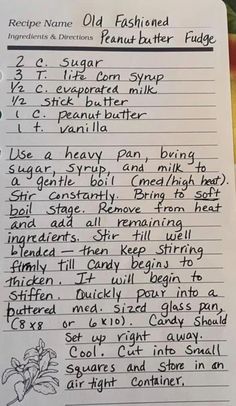 Recipe Name Old Fashioned
Ingredients & Directions Peanut butter Fudge
2 c. sugar
3 T. lite corn syrup
1/2 c. evaporated milk
1/2 stick butter
1 c. peanut butter
1 t. vanilla
Use a heavy pan, bring
sugar, syrup, and milk to
a gentle boil (med/high heat).
Stir constantly. Bring to soft
boil stage. Remove from heat
and add all remaining
ingredients. Stir till well
blended – then keep stirring
firmly till Candy begins to
thicken. It will begin to
stiffen. Quickly pour into a
buttered med. sized glass pan,
(8x8 or 6x10). Candy should
set up right away.
Cool. Cut into small
squares and store in an
air tight container.